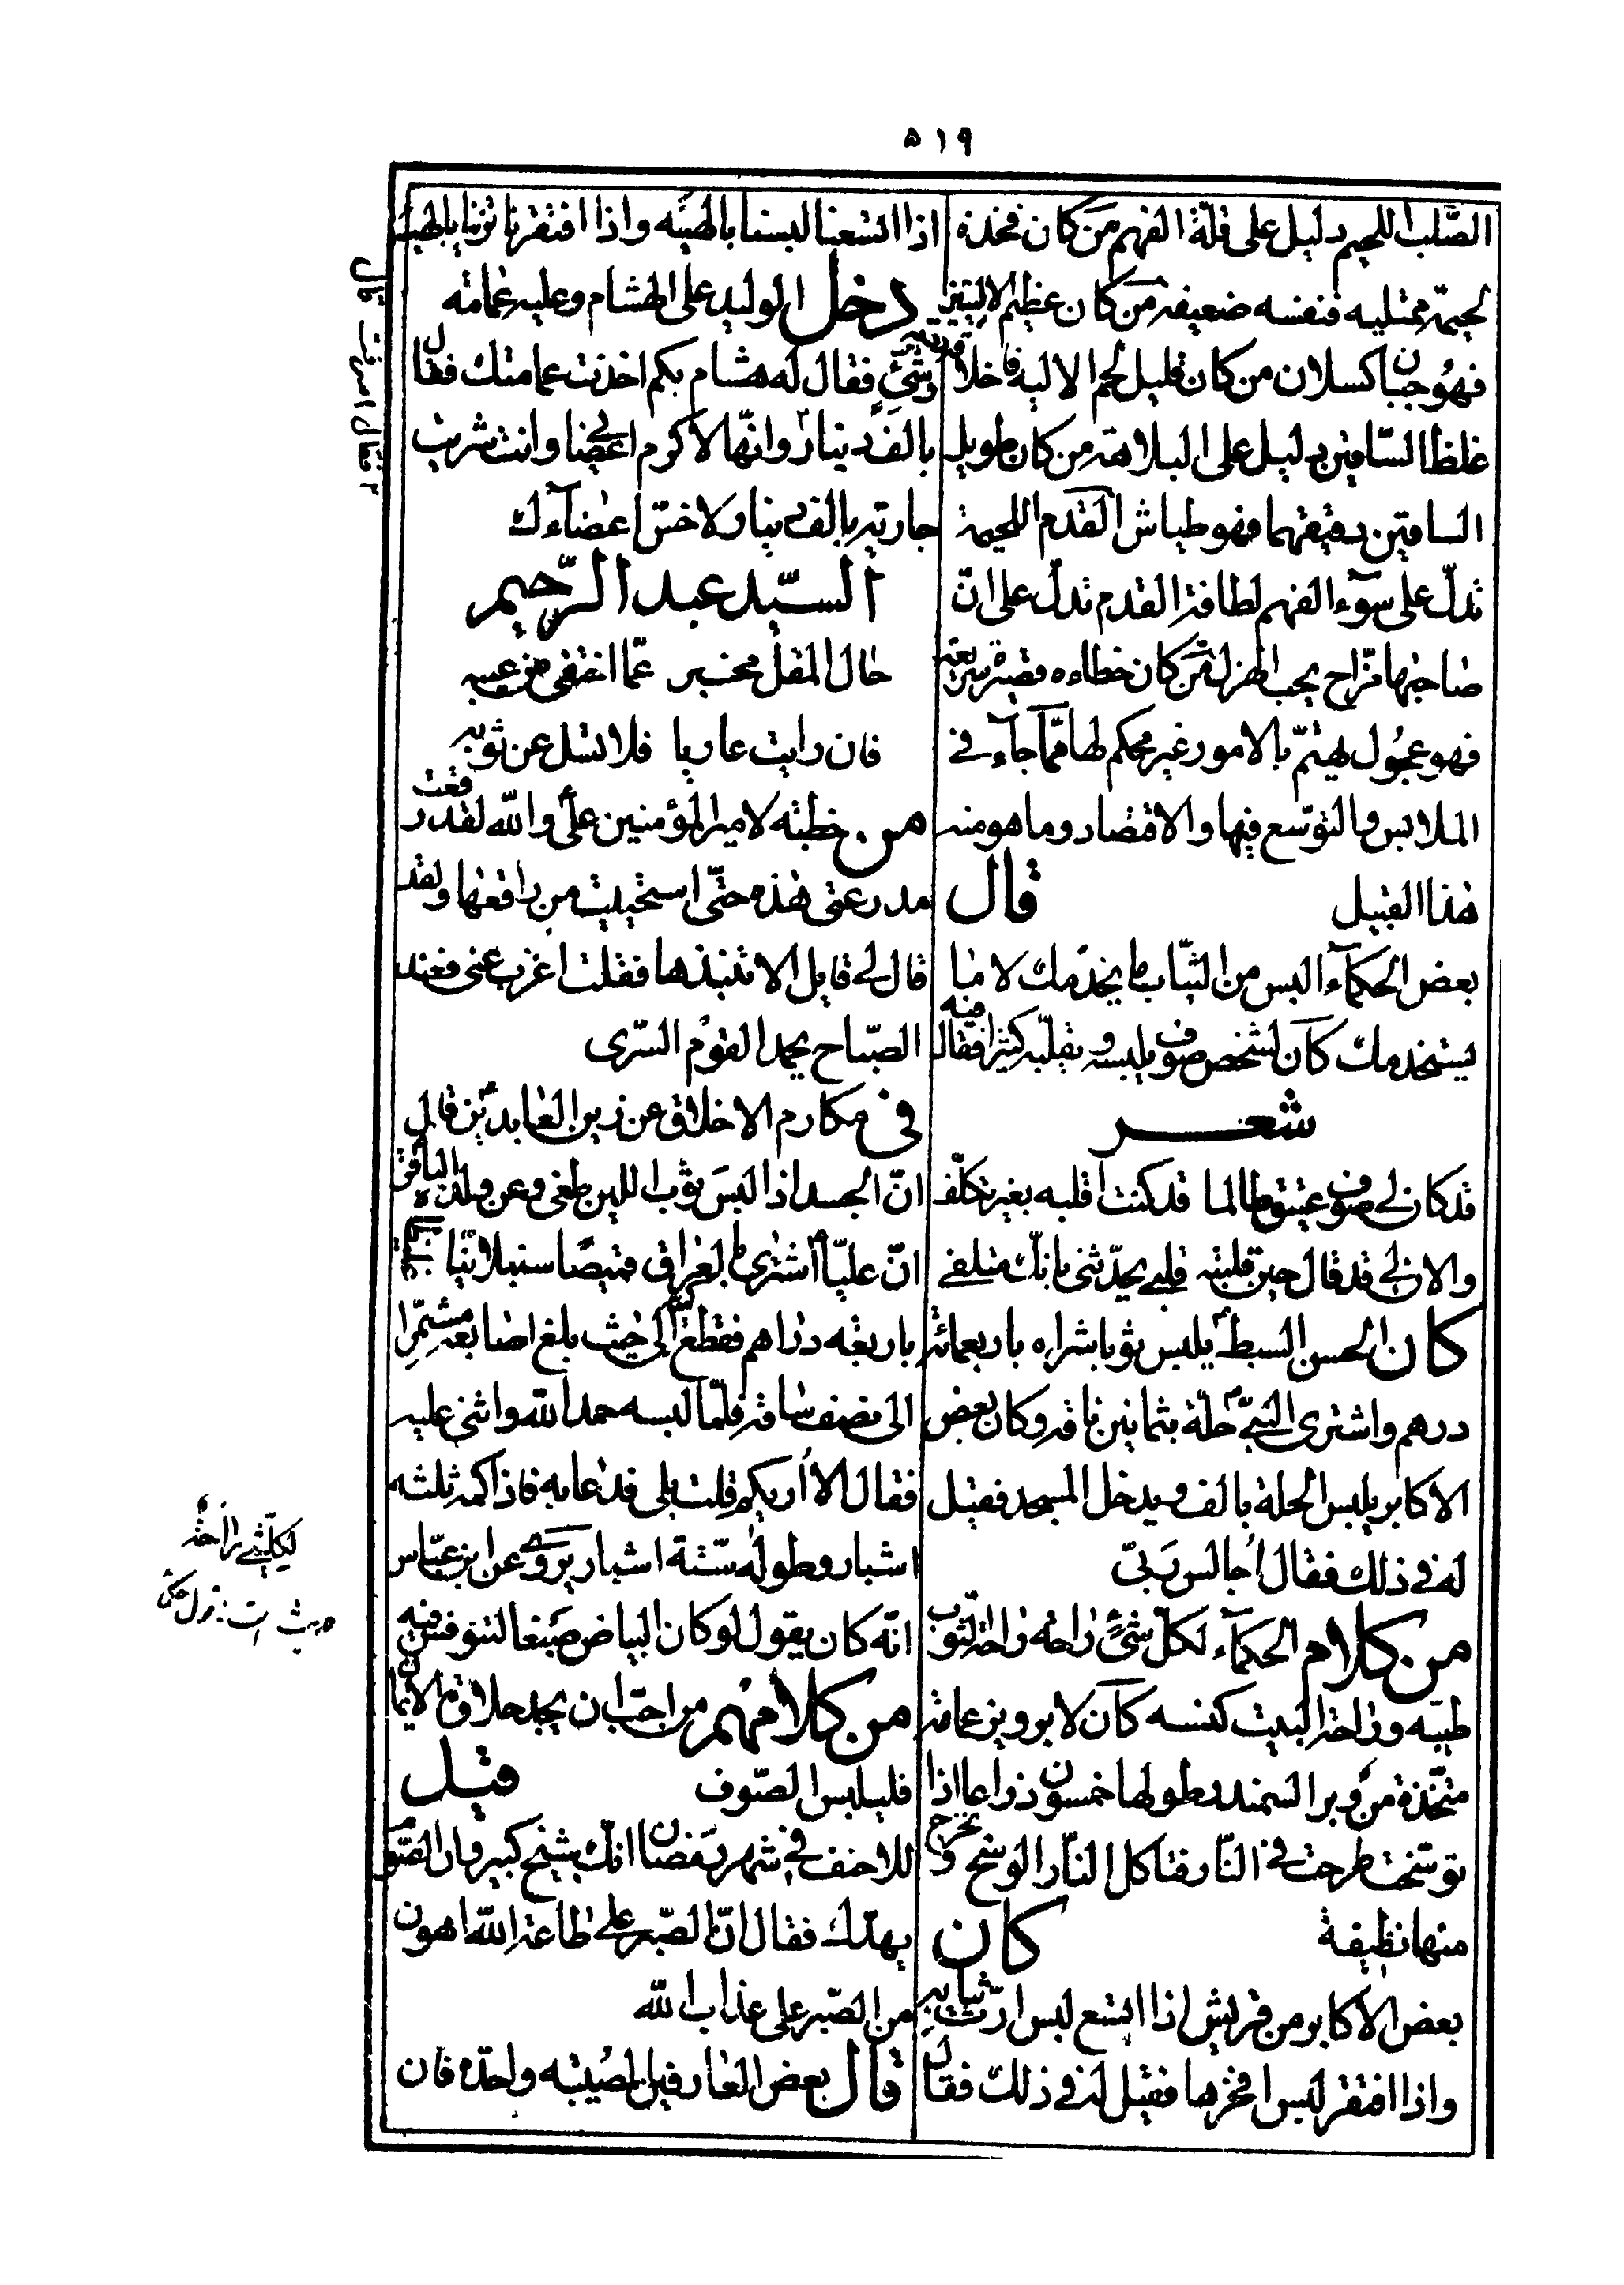 ٥١٩
الصّلب اللحيم دليل على قلّة الفهم من كان فخذه
لحيمة ممتليه فنفسه ضعيفة من كان عظيم الاليتين
فهو جبان كسلان من كان قليل لحم الاليه
غلظ الساقين دليل على البلاهة من كان طويل
الساقين دقيقهما فهو طياش القدم اللحيمة
تدلّ على سوء الفهم لطافة القدم تدلّ على انّ
صاحبها مزّاح يحب الهزل من كان خطاءه قصيرة سريعة
فهو عجول يهتمّ بالامور غير محكم لها ممّا جاء في
الملابس والتوسّع فيها والاقتصاد وما هو منه
هذا القبيل قال
بعض الحكماء البس من الثياب ما يخدمك لا ما
يستخدمك كان لشخص صوف يلبسه و يقلبه كثيرا فقال فيه
شعر
قد كان لي صوف عتيق طالما قد كنت اقلبه بغير تكلّف
والان لي قد قال حين قلبته قلبي يحدّثني بانّك متلفي
كان الحسن السبط يلبس ثوبا شراه باربعمائة
درهم واشترى النبيّ حلة بثمانين ناقة وكان بعض
الاكابر يلبس الحلة بالف ويدخل المسجد فقيل
له في ذلك فقال اجالس ربّي
من كلام الحكماء لكلّ شئ راحة وراحة الثوب
طيّه وراحة البيت كنسه كان لابرويز عمامة
متخّذة من وبر السمندر طولها خمسون ذراعا اذا
توسّخت طرحت في النّار فتاكل النّار الوسخ و تخرج
منها نظيفة كان
بعض الاكابر من قريش اذا اتسع لبس ارثّ ثيابه
واذا افتقر لبس افخرها فقيل له في ذلك فقال
اذا اتسعنا لبسنا بالهيئه واذا افتقرنا تزيّنا بالهيئة
دخل الوليد على الهشام وعليه عمامته
وشئ فقال له هشام بكم اخذت عمامتك فقال
بالف دينار وانّها لاكرم اعضائي وانت شريت
جارية بالف دينار لاخسّ اعضاءك
السيّد عبد الرّحيم
حال المقل مخبر عمّا اختفى من عيبه
فان رايت عاريا فلا تسل عن ثوبه
من خطبته لامير المؤمنين علي والله لقد رقعت
مدرعتي هذه حتّى استحييت من راقعها ولقد
قال لي قايل الا تنبذها فقلت اغرب عني فعند
الصّباح يحمد القوم السّرى
في مكارم الاخلاق عن زين العابدين قال
انّ الجسد اذا لبس ثوب اللين طغى وعن ولده الباقر
انّ عليّا اشترى بالعراق قميصا سنبلانيّا
باربعة دراهم فقطع كمّيه الى حيث بلغ اصابعه مشمّرا
الى نصف ساقه فلمّا لبسه حمد الله واثنى عليه
فقال الا اريكم قلت بلى فدعا به فاذا كمّه ثلثه
اشبار وطوله ستّة اشبار يروى عن ابن عبّاس
انّه كان يقول لو كان البياض صبغا لتنوفس فيه
من كلامهم من احبّ ان يجد حلاوة الايمان
فليلبس الصّوف قيل
للاحنف في شهر رمضان انّك شيخ كبير وان الصّوم
يهدّك فقال انّ الصّبر على طاعة الله اهون
من الصّبر على عذاب الله
قال بعض العارفين المصيبه واحدة فان
لكل شيء راحة